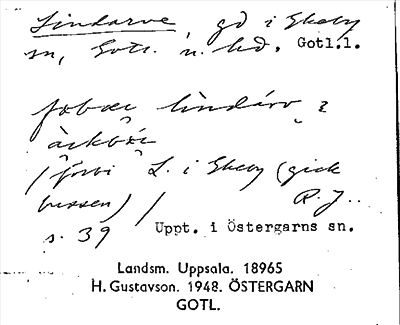 Lindarve, gd i Ekeby
sn, Gotl. n. hd. Gotl.l.
lindarv i
L. i Ekeby (gick
bussen) / R. J..
s. 39 Uppt. i Östergarns sn.
Landsm. Uppsala. 18965
H. Gustavson. 1948. ÖSTERGARN
GOTL.